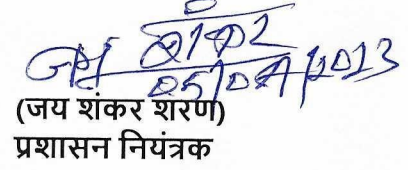 05/04/2013
(जय शंकर शरण)
प्रशासन नियंत्रक